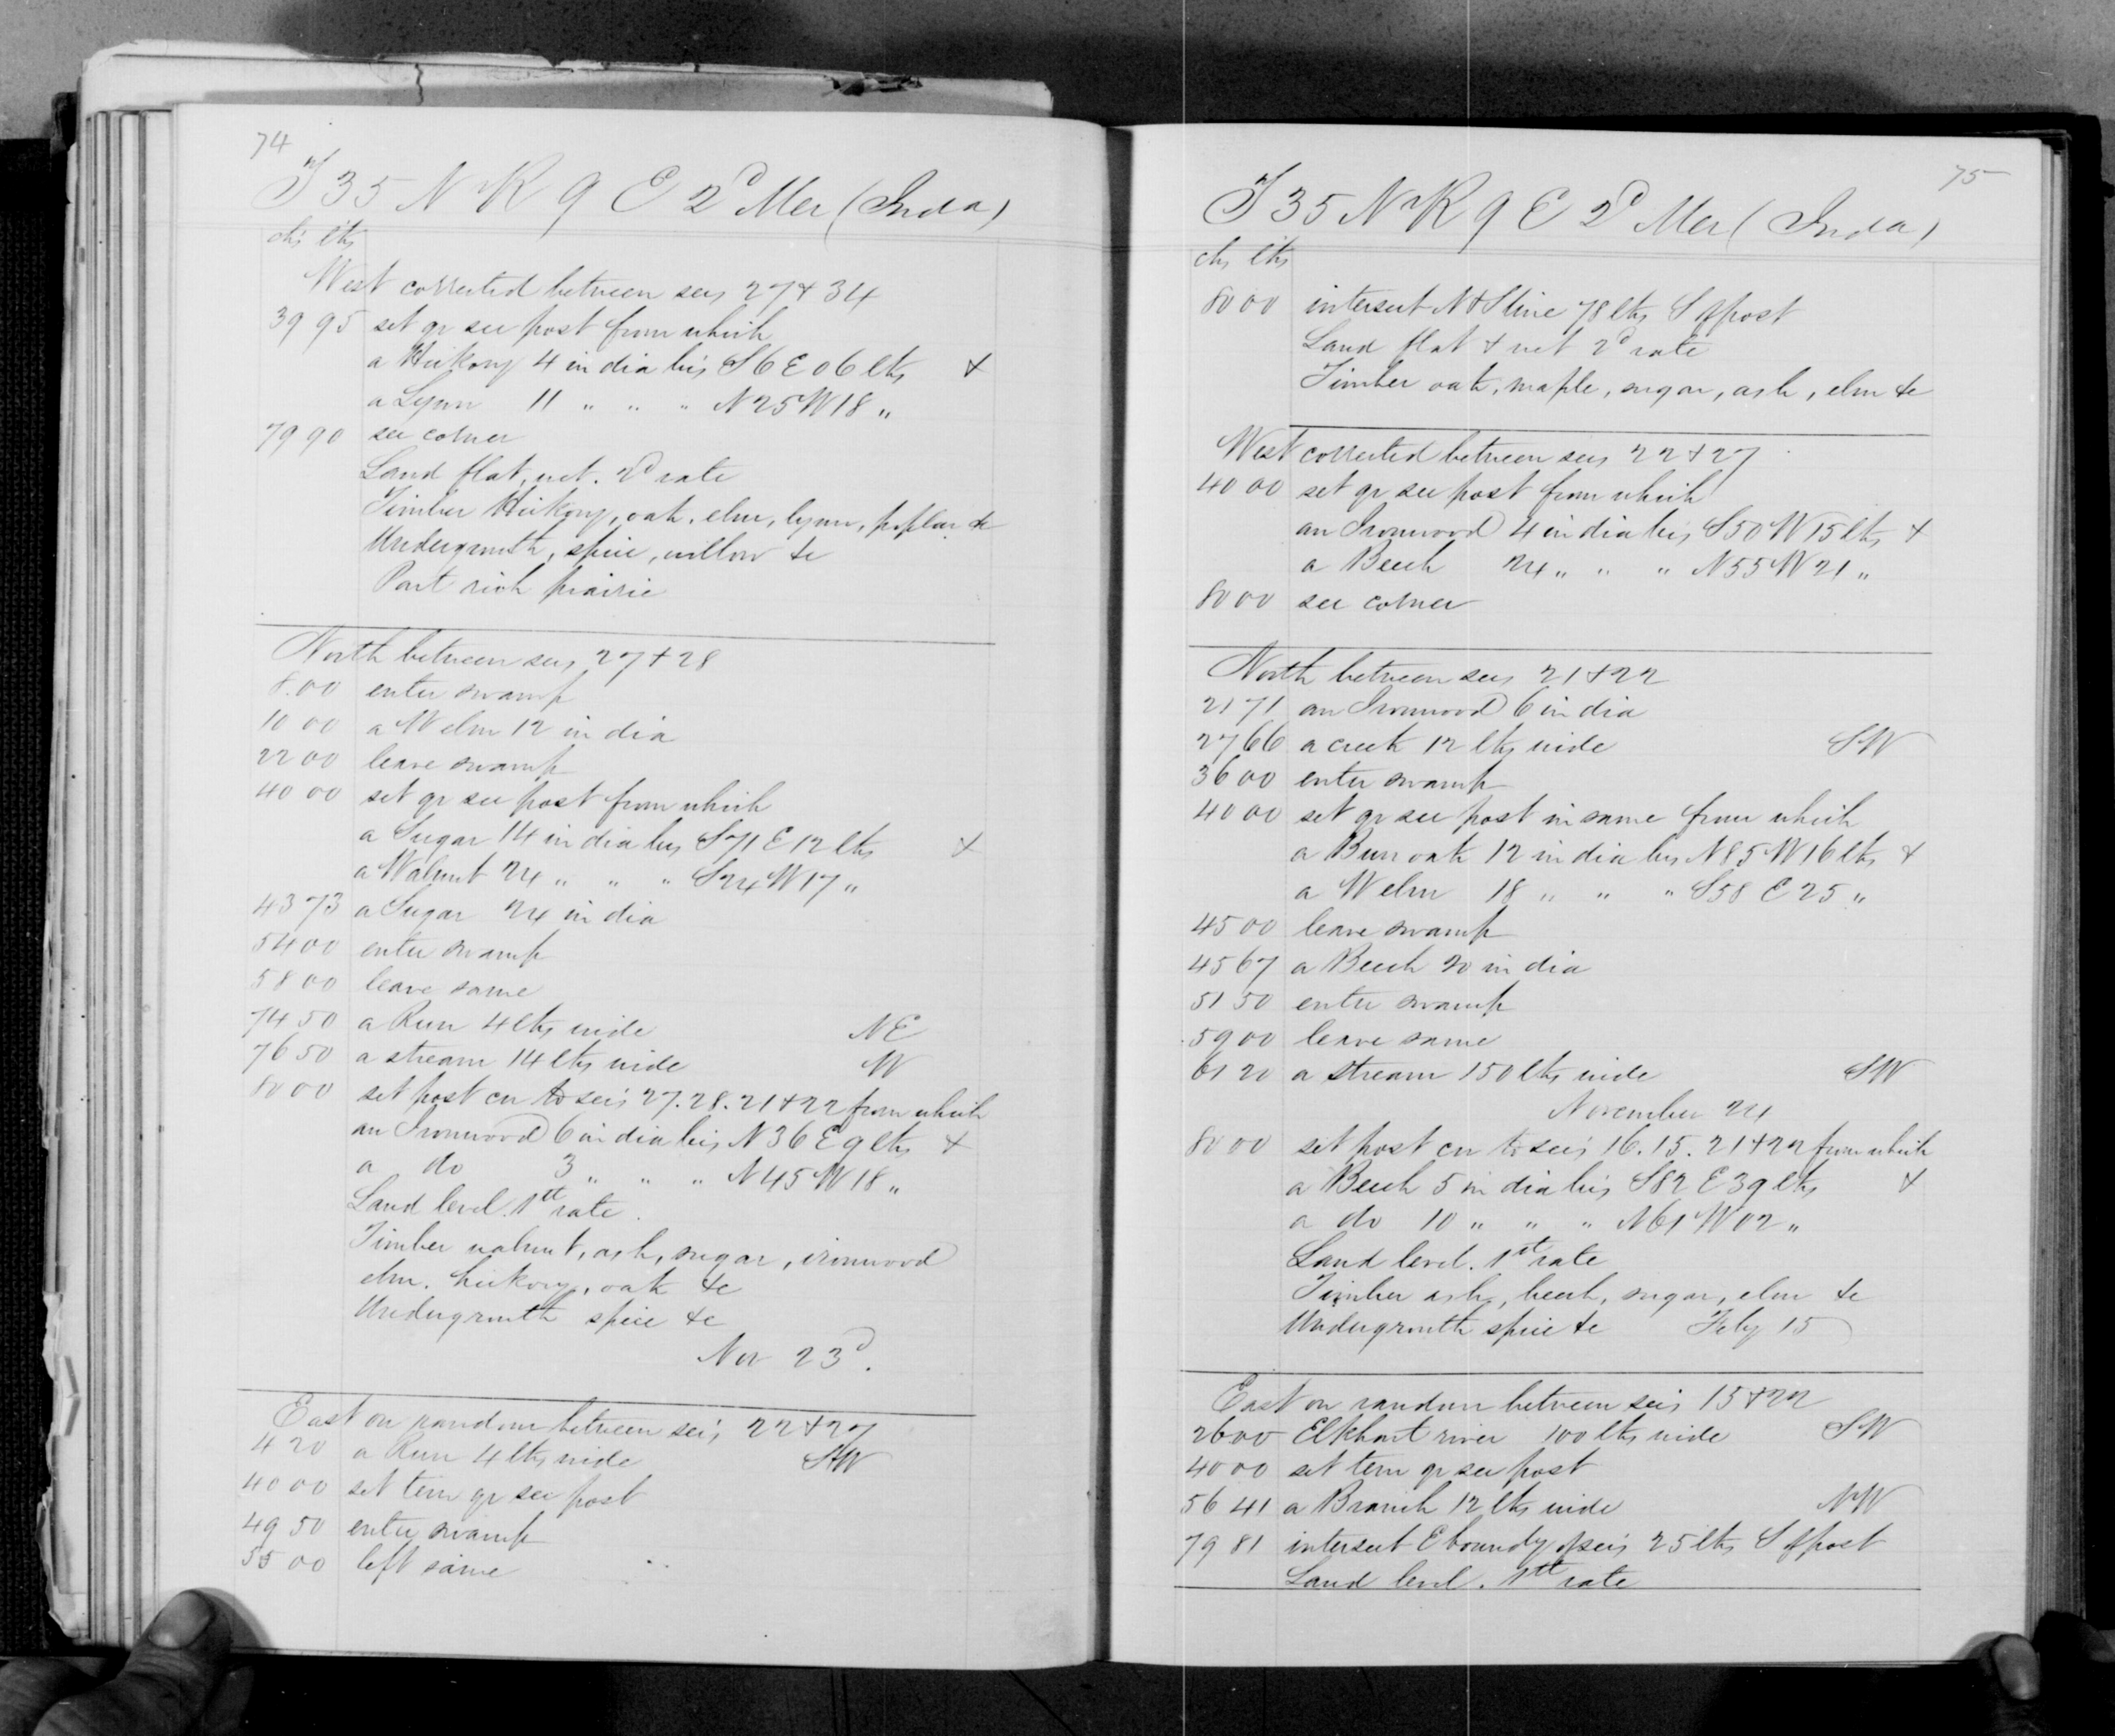 74
T 35 N R 9 E 2d Mer (Inda)
chs lks
West corrected between secs 27 & 34
39 95 set qr sec post from which
a Hickory 4 in dia brs S 6 E 06 lks &
a Lynn 11 " " " N 25 W 18 "
79 90 sec corner
Land flat, wet. 2d rate
Timber Hickory, oak, elm, lynn, poplar &c
Undergrowth, spice, willow &c
Part rich prairie
North between secs 27 & 28
8.00 enter swamp
10 00 a W elm 12 in dia
22 00 leave swamp
40 00 set qr sec post from which
a Sugar 14 in dia brs S 71 E 12 lks &
a Walnut 24 " " " S 24 W 17 "
43 73 a Sugar 24 in dia
54 00 enter swamp
58 00 leave same
74 50 a Run 4 lks wide NE
76 50 a stream 14 lks wide W
80 00 set post cor to secs 27. 28. 21 & 22 from which
an Ironwood 6 in dia brs N 36 E 9 lks &
a do 3 " " " N 45 W 18 "
Land level. 1st rate.
Timber walnut, ash, sugar, ironwood
elm. hickory, oak &c
Undergrowth spice &c
Nov 23d.
East on random between secs 22 & 27
4 20 a Run 4 lks wide SW
40 00 set tem qr sec post
49 50 enter swamp
55 00 left same
75
T 35 N R 9 E 2d Mer (Inda)
chs lks
80 00 intersect N & S line 78 lks S of post
Land flat & wet 2d rate
Timber oak, maple, sugar, ash, elm &c
West corrected between secs 22 & 27
40 00 set qr sec post from which
an Ironwood 4 in dia brs S 50 W 15 lks &
a Beech 24 " " " N 55 W 21 "
80 00 sec corner
North between secs 21 & 22
21 71 an Ironwood 6 in dia
27 66 a creek 12 lks wide SW
36 00 enter swamp
40 00 set qr sec post in same from which
a Burr oak 12 in dia brs N 85 W 16 lks &
a W elm 18 " " " S 58 E 25 "
45 00 leave swamp
45 67 a Beech 20 in dia
51 50 enter swamp
59 00 leave same
61 20 a stream 150 lks wide SW
November 24
80 00 set post cor to secs 16. 15. 21 & 22 from which
a Beech 5 in dia brs S 82 E 39 lks &
a do 10 " " " N 61 W 02 "
Land level. 1st rate
Timber ash, beech, sugar, elm &c
Undergrowth spice &c Feby 15
East on random between secs 15 & 22
26 00 Elkhart river 100 lks wide SW
40 00 set tem qr sec post
56 41 a Branch 12 lks wide NW
79 81 intersect E boundy of secs 25 lks S of post
Land level. 1st rate